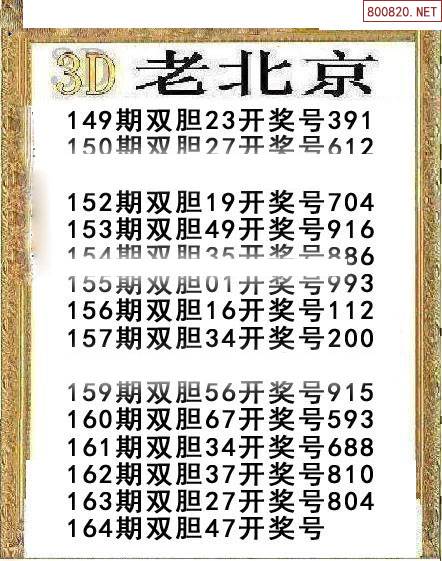 800820.NET
3D 老北京
149期双胆23开奖号391
150期双胆27开奖号612
152期双胆19开奖号704
153期双胆49开奖号916
154期双胆35开奖号886
155期双胆01开奖号993
156期双胆16开奖号112
157期双胆34开奖号200
159期双胆56开奖号915
160期双胆67开奖号593
161期双胆34开奖号688
162期双胆37开奖号810
163期双胆27开奖号804
164期双胆47开奖号